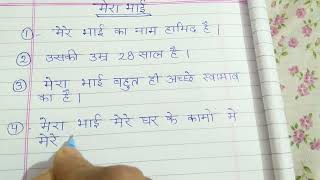 मेरा भाई
① - मेरे भाई का नाम हामिद है ।
② उसकी उम्र 28 साल है ।
③ मेरा भाई बहुत ही अच्छे स्वाभाव
का है ।
④ - मेरा भाई मेरे घर के कामो में
मेरे